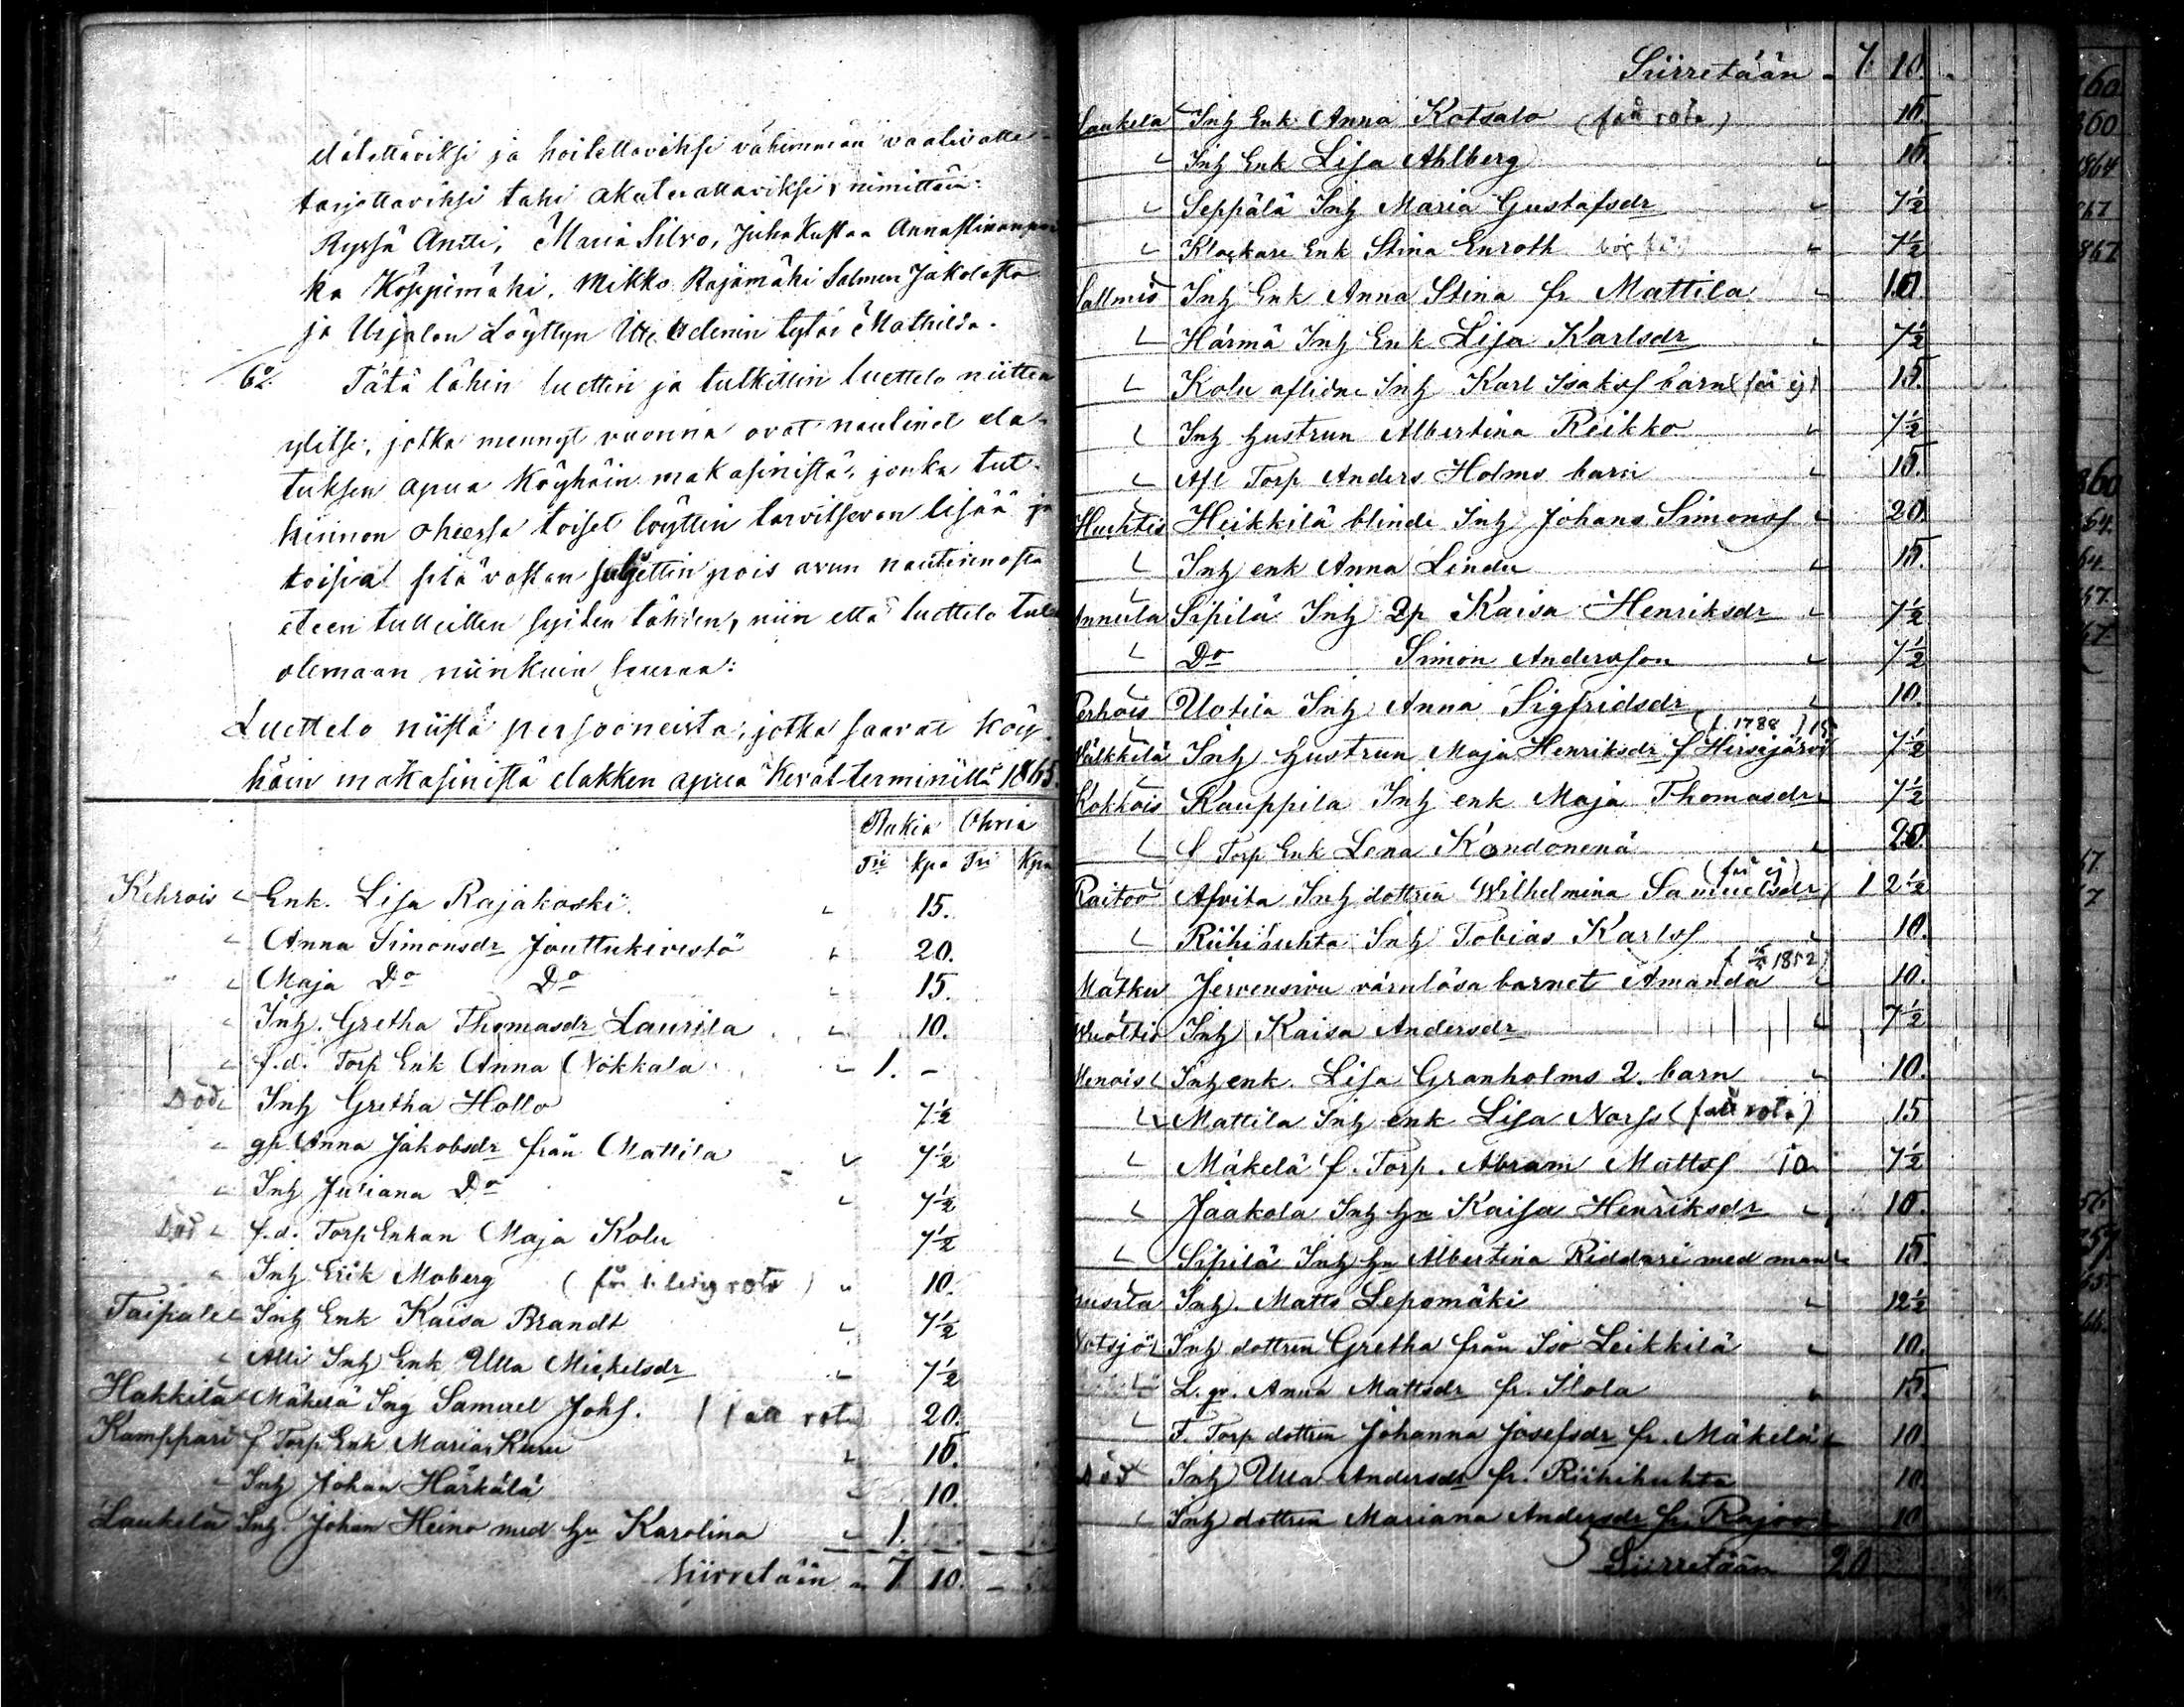 elätettäviksi ja hoitettaviksi vähimmän vaativalle
tarjottaviksi tahi akuteerattaviksi, nimittäin:
Ryssä Antti, Maria Silvo, Juha Kustaa Annastiinanpoi
ka Köppimäki, Mikko Rajamäki Salmen Jakolasta
ja Urjalan Löyttyn tytär Mathilda.
6o/. Tätä lähin luettin ja tutkittin luettelo niitten
ylitse, jotka mennyt vuonna ovat nautinet ela-
tuksen apua Köyhäin makasinista, jonka tut-
kinnon ohessa toiset löyttin tarvitsevan lisää ja
toisia sitä vastan suljettin pois avun nautinnosta
eteen tulleitten syiden tähden, niin että luettelo tulee
olemaan niinkuin seuraa:
Luettelo niistä persooneista, jotka saavat köy-
häin makasinista elakken apua Kevät-terminillä 1865.
Rukia Ohria
Tri kpa Tri Kpa
Kehrois Enk. Lisa Rajakoski 15.
Anna Simonsdr Jouttukivestö 20.
Maja Do Do 15.
Inh. Gretha Thomasdr Laurila 10.
f.d. Torp Enk Anna Nokkala 1. -
Död Inh Gretha Hollo 7½
gp Anna Jakobsdr från Mattila 7½
Inh Juliana Do 7½
Död f.d. Torp Enkan Maja Kolu 7½
Inh Erik Moberg (får rota) 10.
Taipale Inh Enk Kaisa Brandt 7½
Alli Inh Enk Ulla Mickelsdr 7½
Hakkila Mäkelä Ing Samuel Johs. (rota) 20.
Kamppari f Torp Enk Maria Kuru 15.
Inh Johan Härkälä 10.
Laukela Inh. Johan Heino med hu Karolina 1.
Siirretään 7 10. -
Siirretään 7 10.
Laukela Inh Enk Anna Kotsalo (rota) 15.
Inh Enk Lisa Ahlberg 15.
Seppälä Inh Maria Gustafsdr 7½
Klockare Enk Stina Enroth 7½
Sallmis Inh Enk Anna Stina fr Mattila 10.
Härmä Inh Enk Lisa Karlsdr 7½
Kolu aflidne Inh Karl Isakss barn (får ej) 15.
Inh hustrun Albertina Reikko 7½
Afl Torp Anders Holms barn 15.
Huhtis Heikkilä blinde Inh Johans Simonss 20.
Inh enk Anna Lindu 15.
Annula Sipilä Inh Qp Kaisa Henriksdr 7½
Do Simon Andersson 7½
Perhois Uotila Inh Anna Sigfridsdr 10.
Inh hustrun Maja Henriksdr f Hirsijärvi (f. 1788) 7½
Kokkois Kauppila Inh enk Maja Thomasdr 7½
f Torp Enk Lena Kondonenä 20.
Raitoo Afvita Inh dottren Wilhelmina Samuelsdr (får ej) 1 2½
Riihihuhta Inh Tobias Karlss 10.
Matku Jervensivu värnlösa barnet Amanda 1852 10.
Inh Kaisa Andersdr 7½
Menois Inh enk. Lisa Granholms 2. barn 10.
Mattila Inh enk Lisa Norss (rota) 15
Mäkelä f. Torp. Abram Mattss 7½
Jaakola Inh hu Kaisa Henriksdr 10.
Sipilä Inh hu Albertina Riddari med man 15.
Inh. Matts Lepomäki 12½
Inh dottren Gretha från Iso Leikkilä 10.
L. gr. Anna Mattsdr fr. Ilola 15.
F. Torp dottren Johanna Josefsdr fr. Mäkelä 10.
Död Inh Ulla Andersdr fr. Riihihuhta 10.
Inh dottren Mariana Andersdr fr. Rajoo 10
Siirretään 20